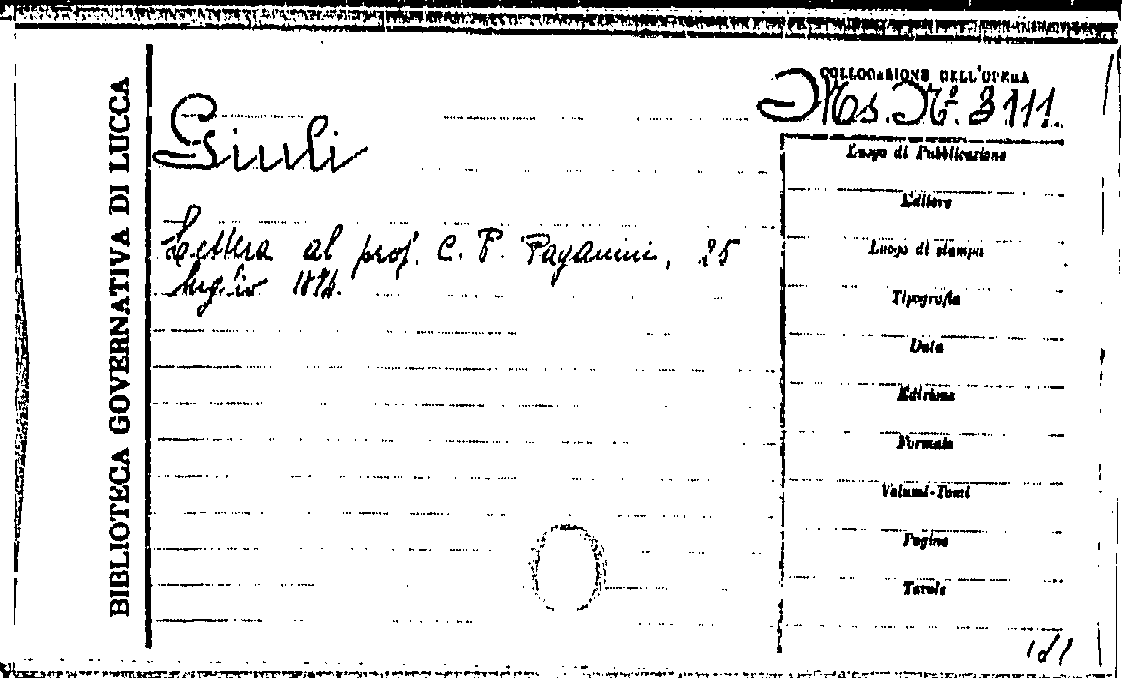 BIBLIOTECA GOVERNATIVA DI LUCCA
COLLOCAZIONE DELL'OPERA
Ms. N.º 3111.
Giuli
Lettera al prof. C. P. Paganini, 25
luglio
Luogo di Pubblicazione
Editore
Luogo di stampa
Tipografia
Data
Edizione
Formato
Volumi-Tomi
Pagine
Tavole